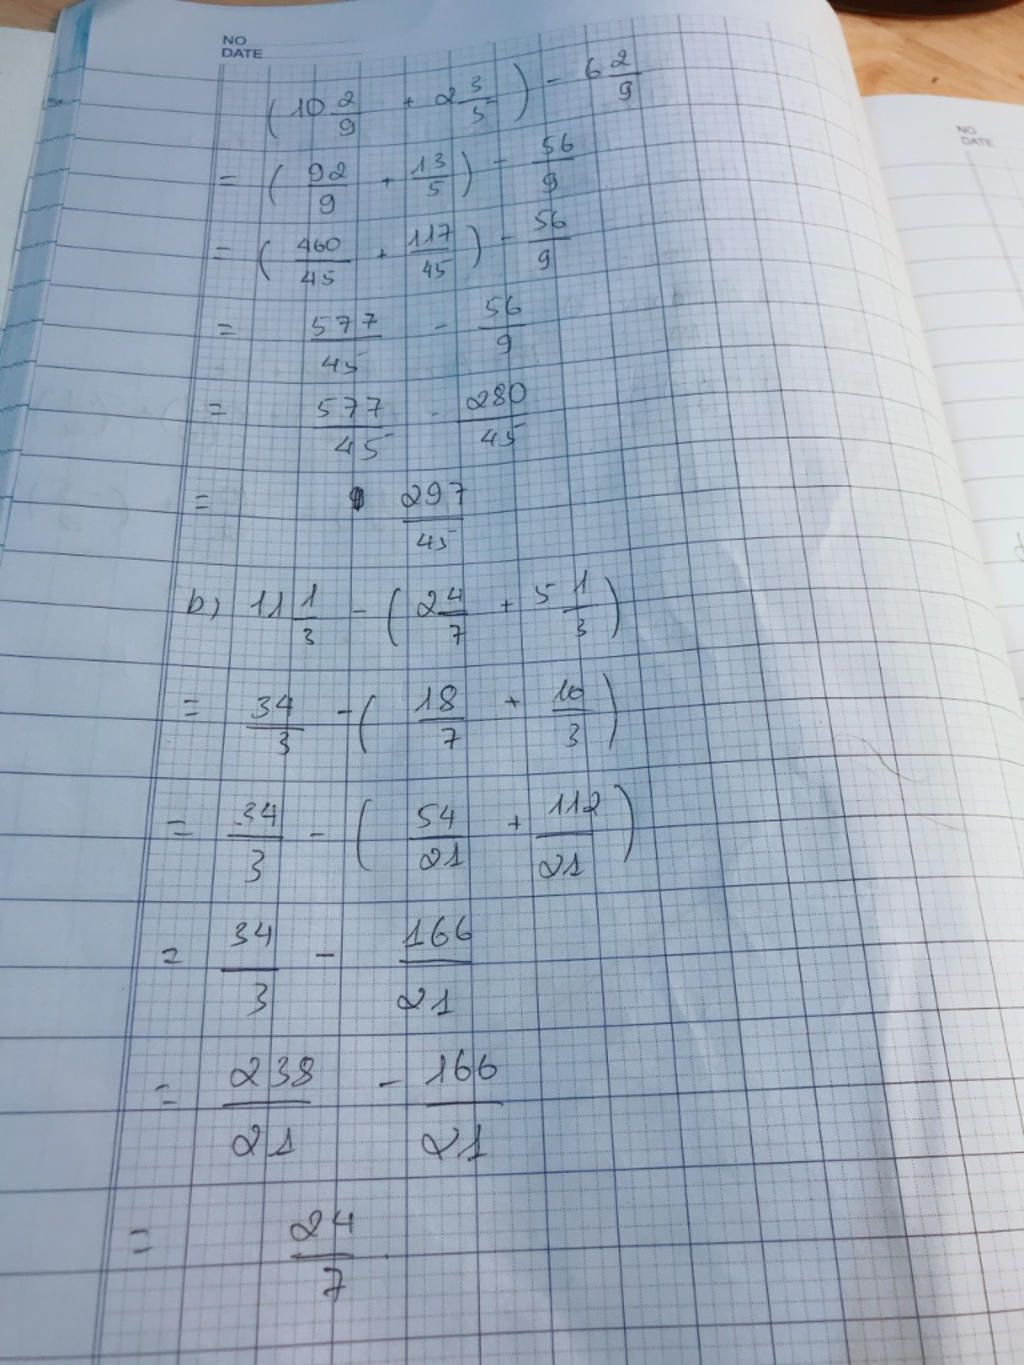 NO
DATE
NO
DATE
(10 2/9 + 2 3/5) - 6 2/9
= (92/9 + 13/5) - 56/9
= (460/45 + 117/45) - 56/9
= 577/45 - 56/9
= 577/45 - 280/45
= 297/45
b) 11 1/3 - (2 4/7 + 5 1/3)
= 34/3 - (18/7 + 16/3)
= 34/3 - (54/21 + 112/21)
= 34/3 - 166/21
= 238/21 - 166/21
= 24/7